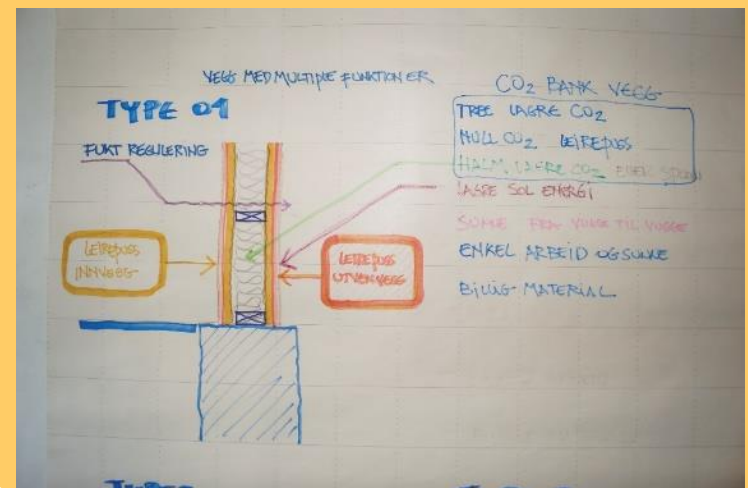 VEGG MED MULTIPLE FUNKTIONER
TYPE 01
FUKT REGULERING
LEIREPUSS
INNVEGG
LEIREPUSS
UTVENVEGG
CO2 BANK VEGG
TREE LAGRE CO2
NULL CO2 LEIREPUSS
HALM, LAGRE CO2
LAGRE SOL ENERGI
FRA VUGGE TIL VUGGE
ENKEL ARBEID OG SUNNE
BILLIG MATERIAL